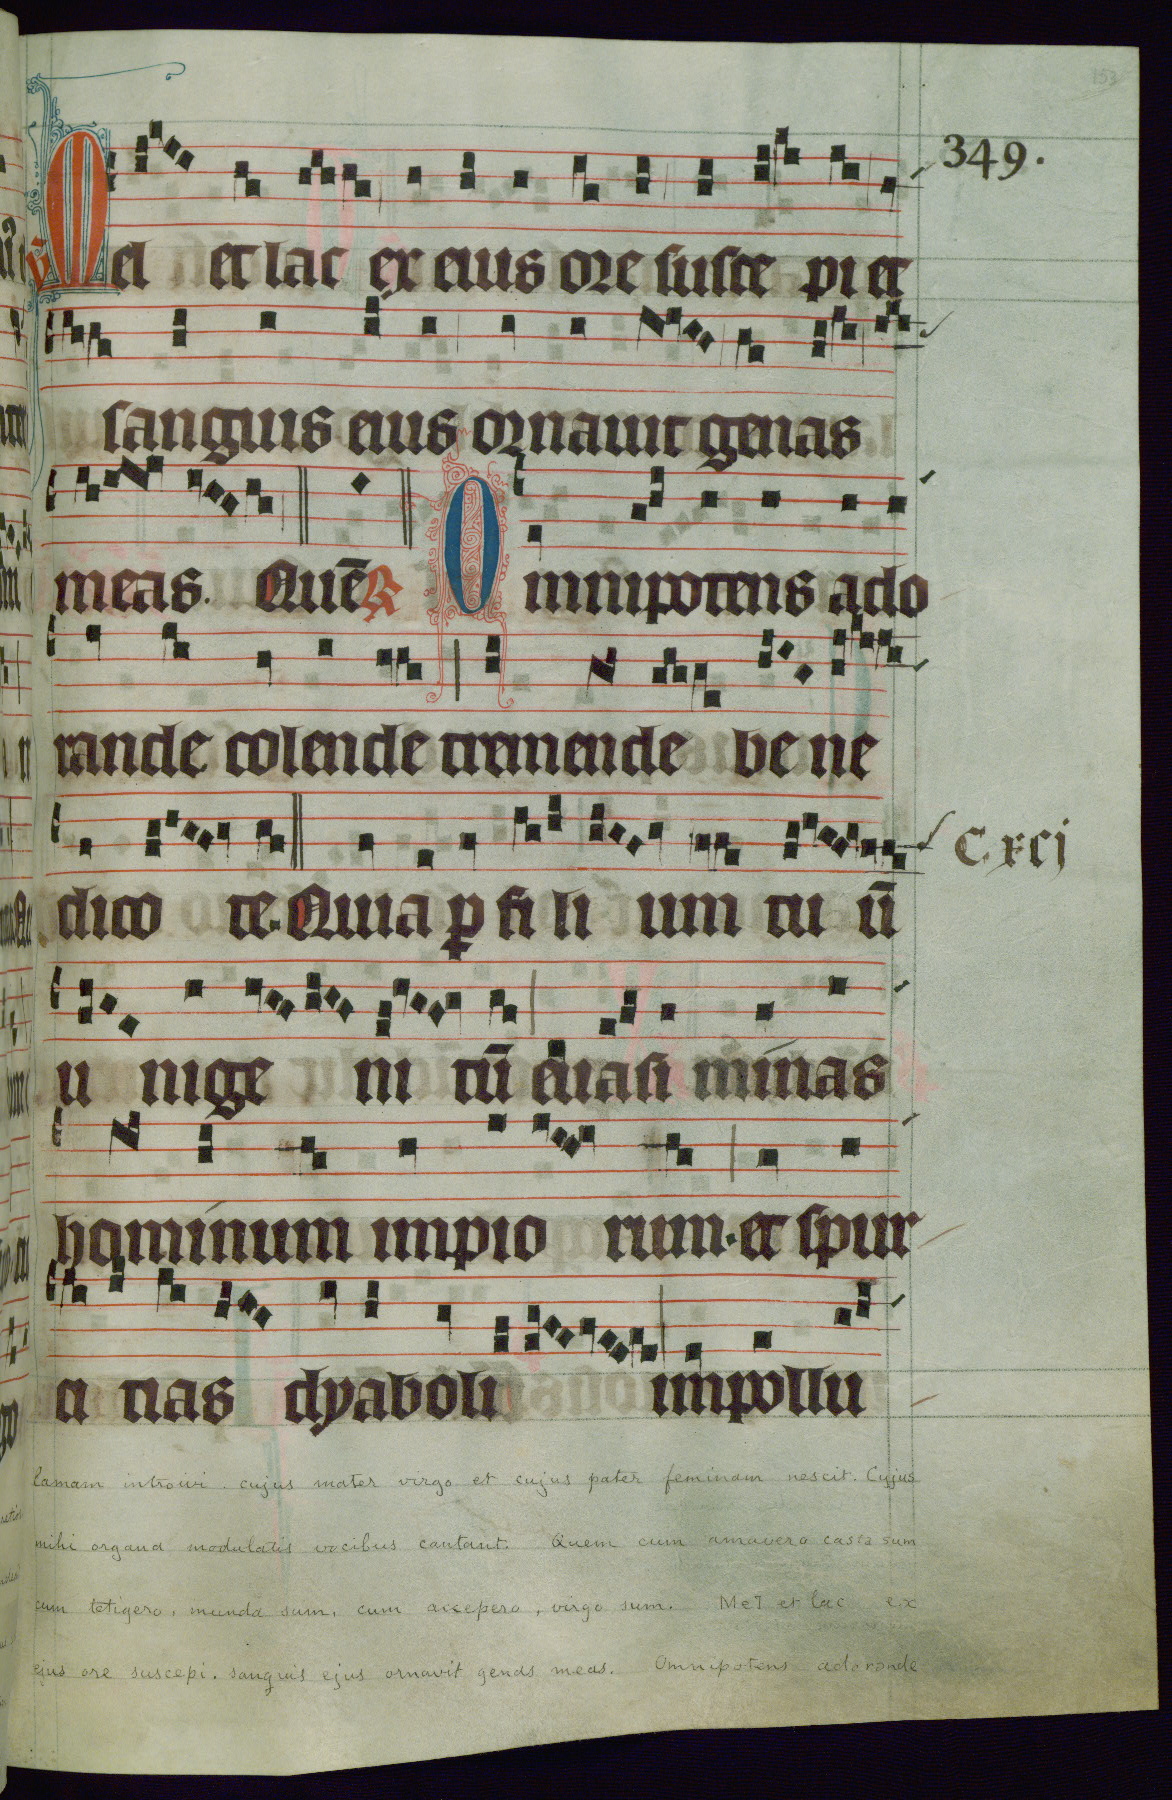 153
349.
v Mel et lac ex eius ore suſce pi et
ſanguis eius ornauit genas
meas. Quē R Omnipotens ado
rande colende tremende be ne
dico te. Quia ꝑ fi li um tu ū
C. xcj
u nige ni tū euasi minas
hominum impio rum. et ſpur
ci tias dyaboli impollu
Zamam introivi. cujus mater virgo et cujus pater feminam nescit. Cujus
mihi organa modulatis vocibus cantant. Quem cum amavero casta sum
cum tetigero, munda sum, cum accepero, virgo sum. Mel et lac ex
ejus ore suscepi. sanguis ejus ornavit genas meas. Omnipotens adorande